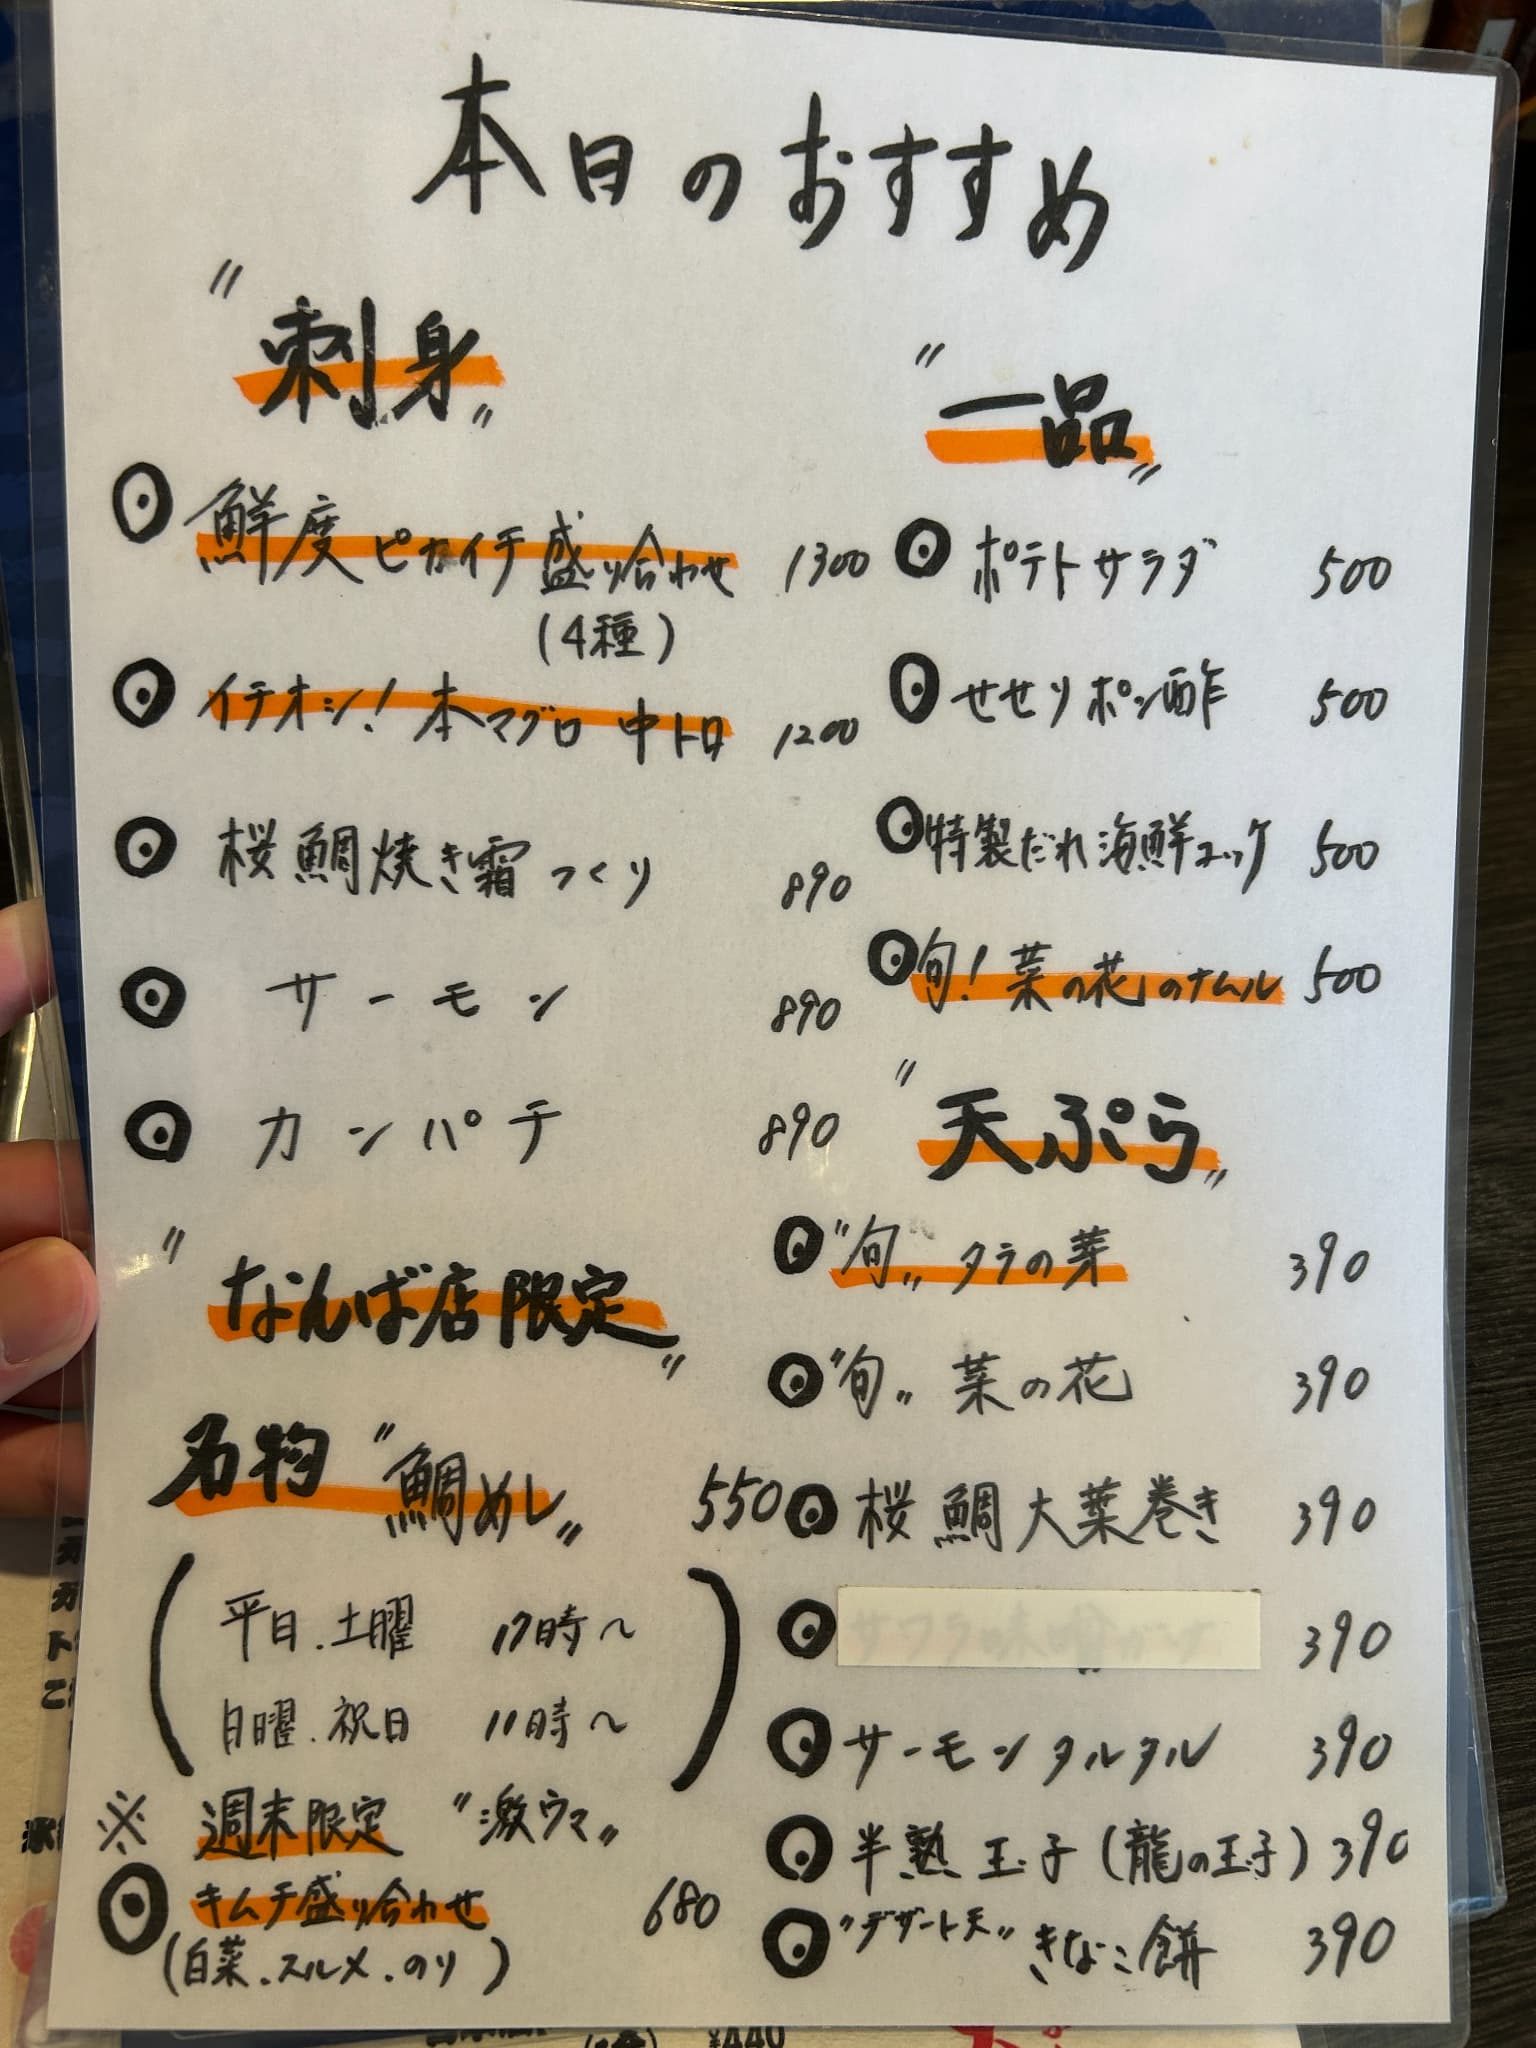 本日のおすすめ
〝刺身〟
鮮度ピカイチ盛り合わせ 1300
(4種)
イチオシ! 本マグロ 中トロ 1200
桜鯛焼き霜つくり 890
サーモン 890
カンパチ 890
〝なんば店限定〟
名物〝鯛めし〟 550
平日.土曜 17時〜
日曜.祝日 11時〜
※ 週末限定 〝激ウマ〟
キムチ盛り合わせ 680
(白菜.スルメ.のり)
〝一品〟
ポテトサラダ 500
せせりポン酢 500
特製だれ海鮮ユッケ 500
旬! 菜の花のナムル 500
〝天ぷら〟
〝旬〟タラの芽 390
〝旬〟菜の花 390
桜鯛大葉巻き 390
390
サーモンタルタル 390
半熟玉子(龍の玉子) 390
〝デザート天〟きなこ餅 390
¥440